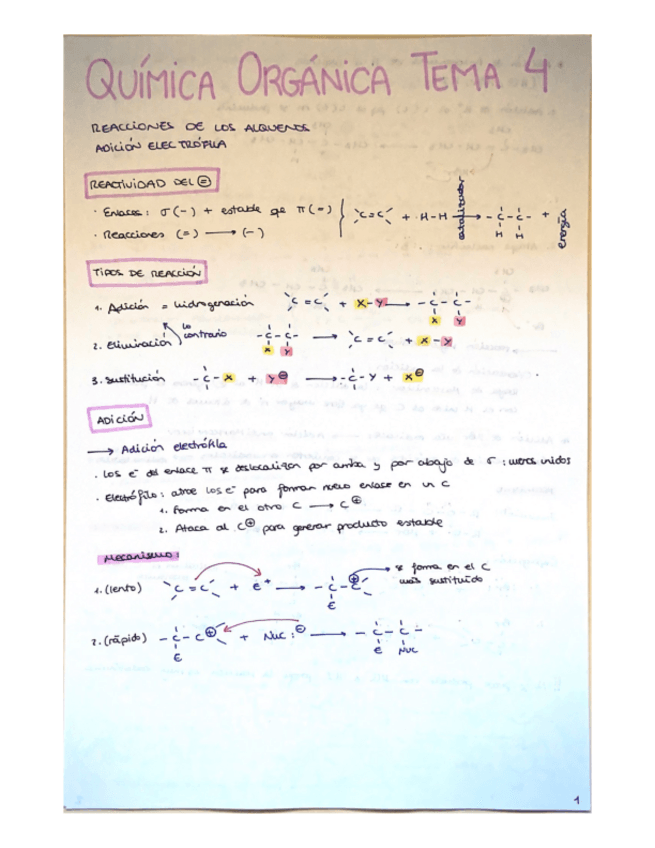 QUÍMICA ORGÁNICA TEMA 4
REACCIONES DE LOS ALQUENOS
ADICIÓN ELECTRÓFILA
REACTIVIDAD DEL (=)
· Enlaces: σ(-) + estable qe π(=)
· Reacciones (=) → (-)
C=C + H-H → -C-C- + energía
catalizador
H H
TIPOS DE REACCIÓN
1. Adición = hidrogenación C=C + X-Y → -C-C-
X Y
lo contrario
2. Eliminación -C-C- → C=C + X-Y
X Y
3. Sustitución -C-X + Y⊖ → -C-Y + X⊖
ADICIÓN
→ Adición electrófila
· Los e⁻ del enlace π se deslocalizan por arriba y por abajo de σ: menos unidos
· Electrófilo: atrae los e⁻ para formar nuevo enlace en un C
1. Forma en el otro C → C⊕
2. Ataca al C⊕ para generar producto estable
Mecanismo:
1. (lento) C=C + E⁺ → -C-C⊕
E
→ se forma en el C
más sustituido
2. (rápido) -C-C⊕ + Nuc:⊖ → -C-C-
E E Nuc
1